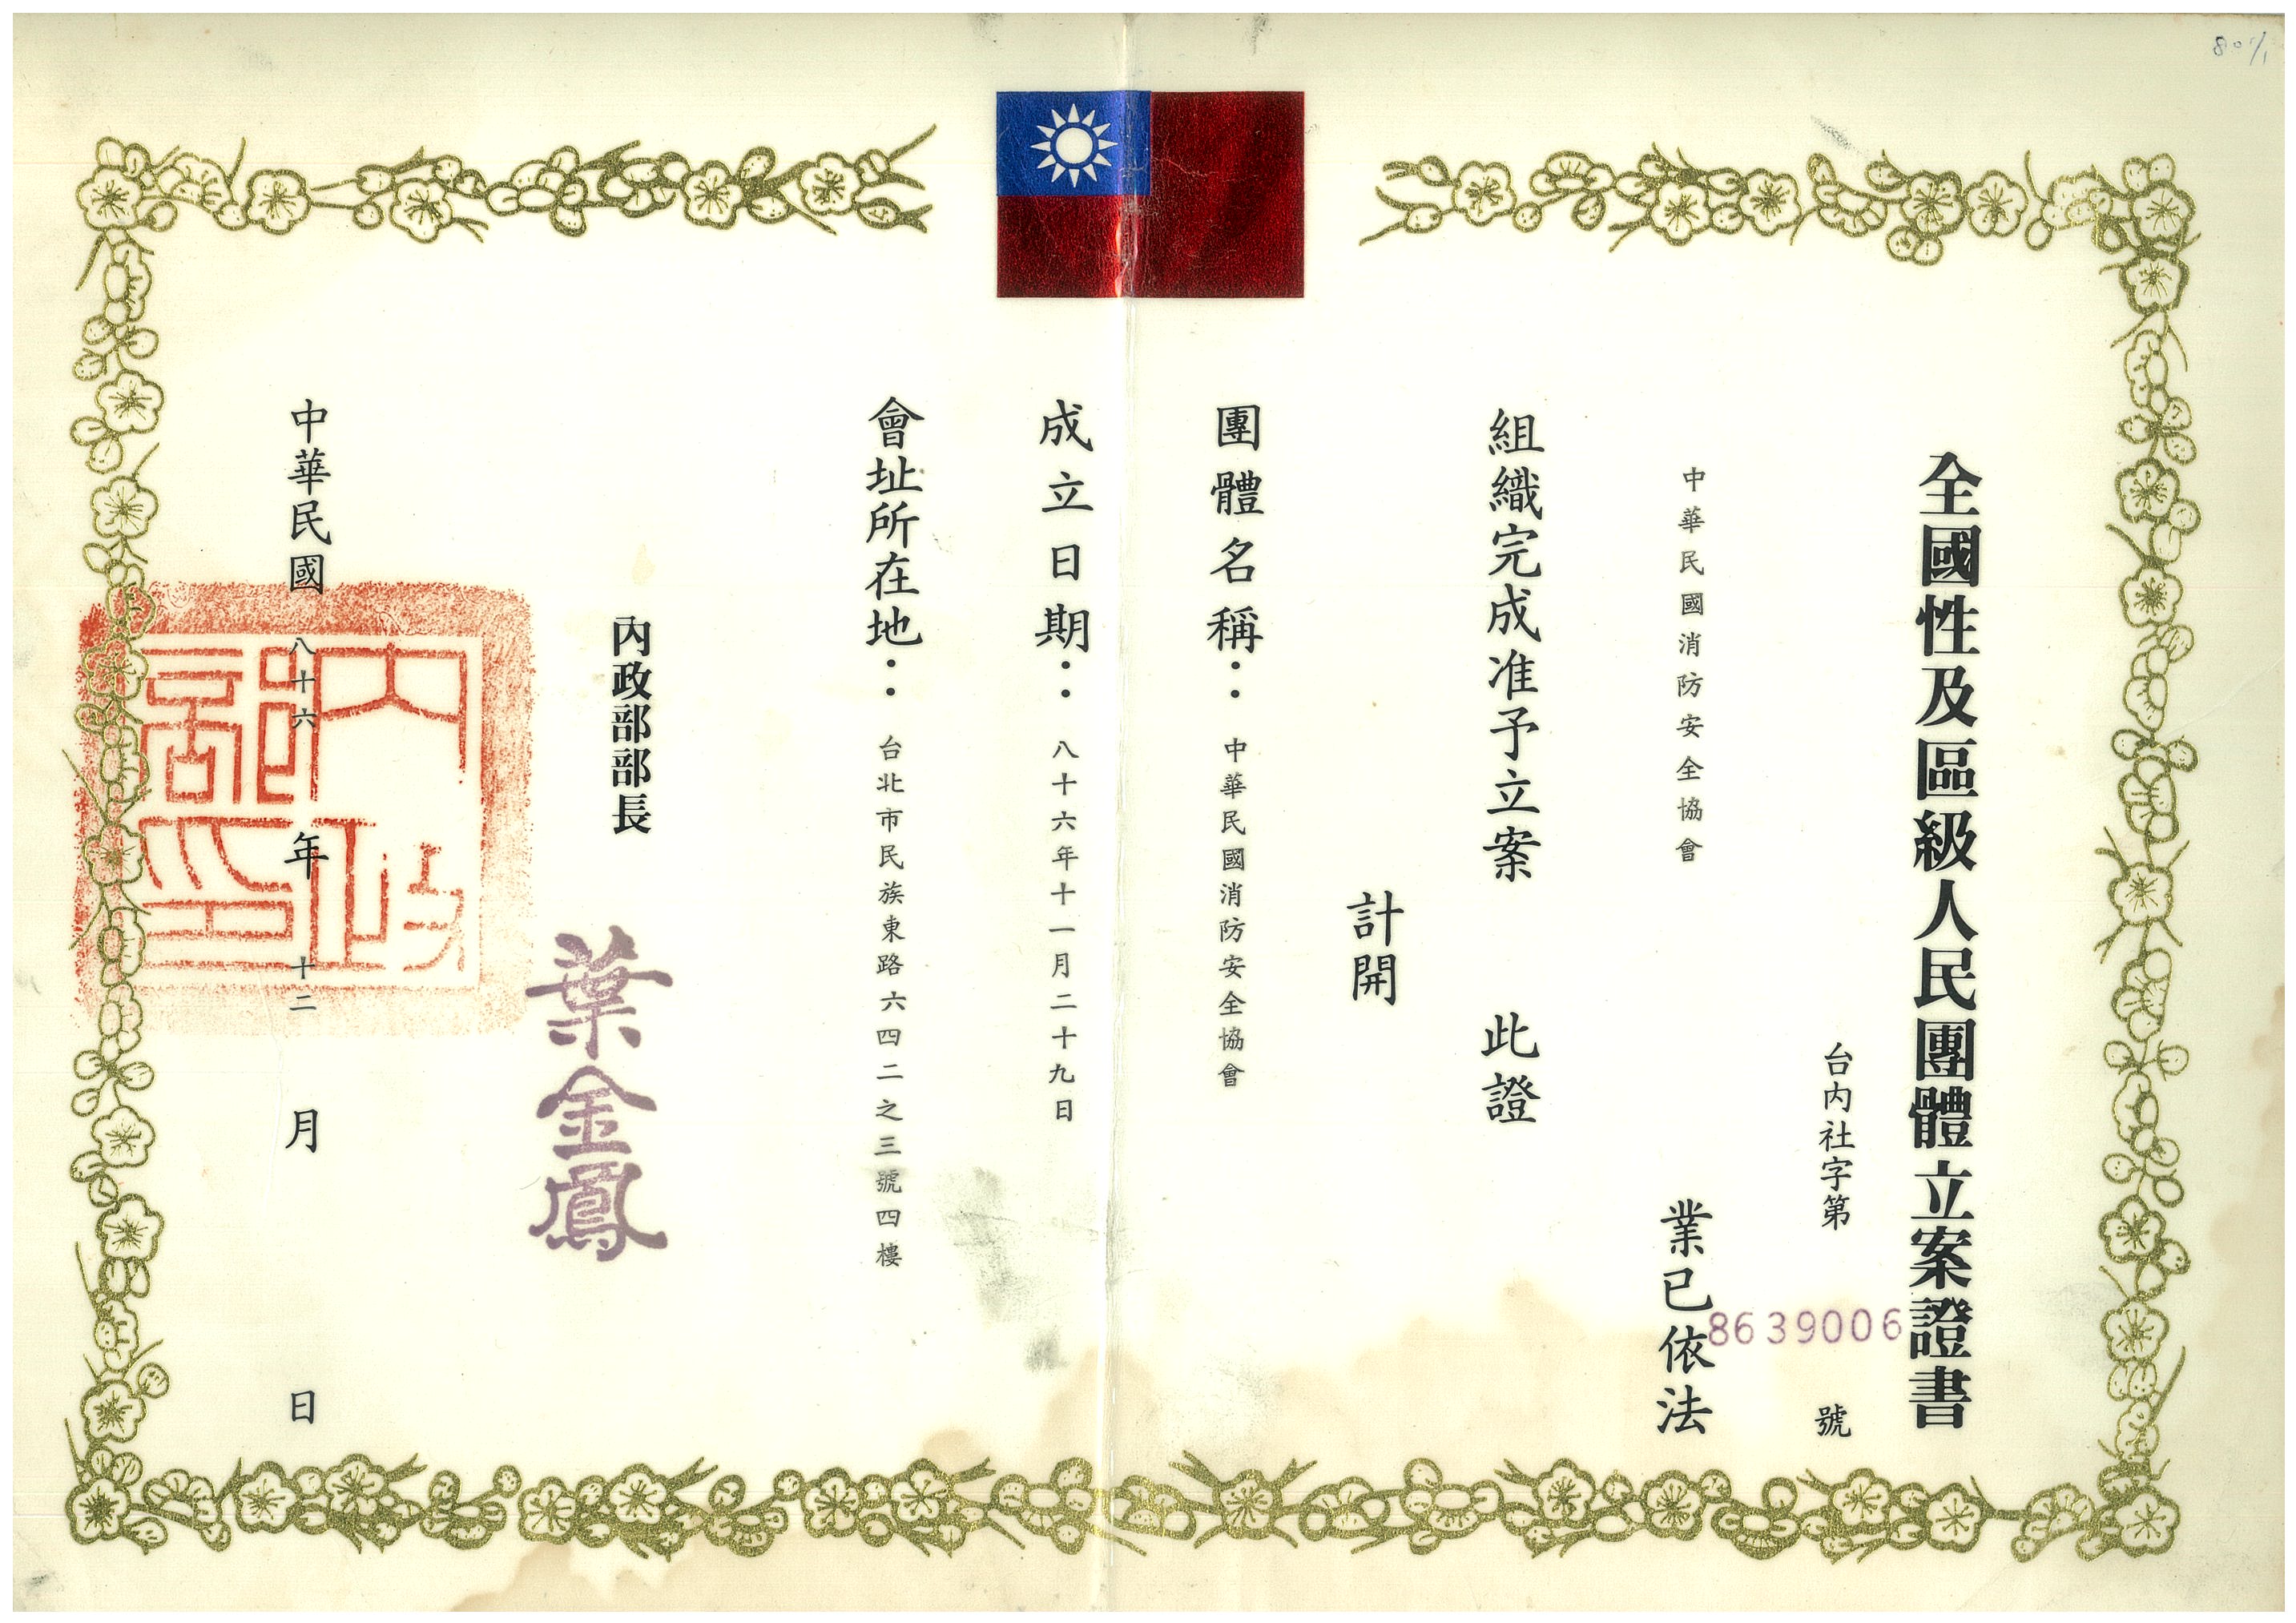 80 1/1
全國性及區級人民團體立案證書
台內社字第 8639006 號
中華民國消防安全協會 業已依法
組織完成准予立案 此證
計開
團體名稱:中華民國消防安全協會
成立日期:八十六年十一月二十九日
會址所在地:台北市民族東路六四二之三號四樓
內政部部長 葉金鳳
中華民國 八十六 年 十二 月 日
內政部印